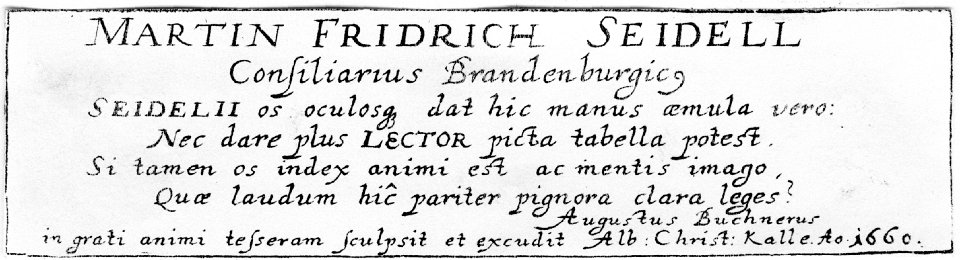 MARTIN FRIDRICH SEIDELL
Conſiliarius Brandenburgicꝰ
SEIDELII os oculosqꝫ dat hic manus æmula vero:
Nec dare plus LECTOR picta tabella potest.
Si tamen os index animi est ac mentis imago,
Quæ laudum hîc pariter pignora clara leges?
Augustus Buchnerus
in grati animi teſſeram ſculpsit et excudit Alb: Christ: Kalle. Ao. 1660.